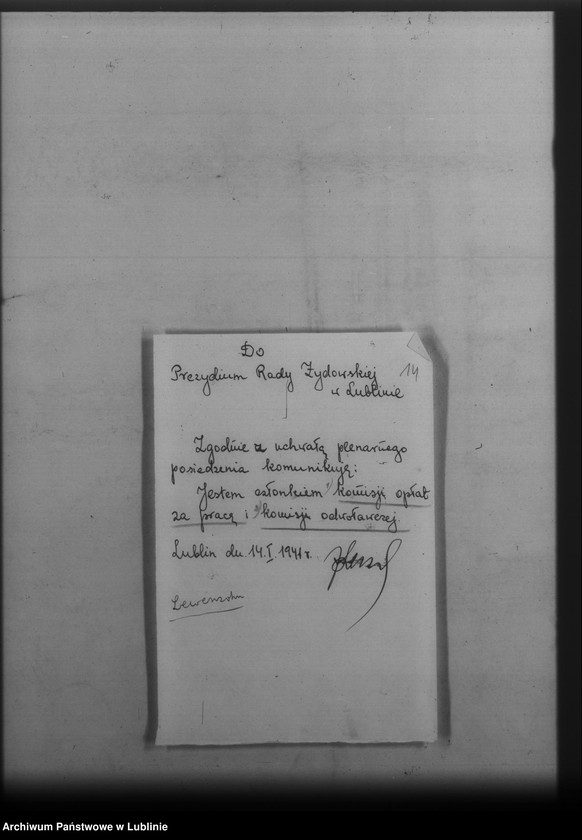 Do
Prezydium Rady Żydowskiej 14
w Lublinie
Zgodnie z uchwałą plenarnego
posiedzenia komunikuję:
Jestem członkiem komisji opłat
za pracę i komisji odwoławczej.
Lublin dn. 14.I.1941 r.
Archiwum Państwowe w Lublinie